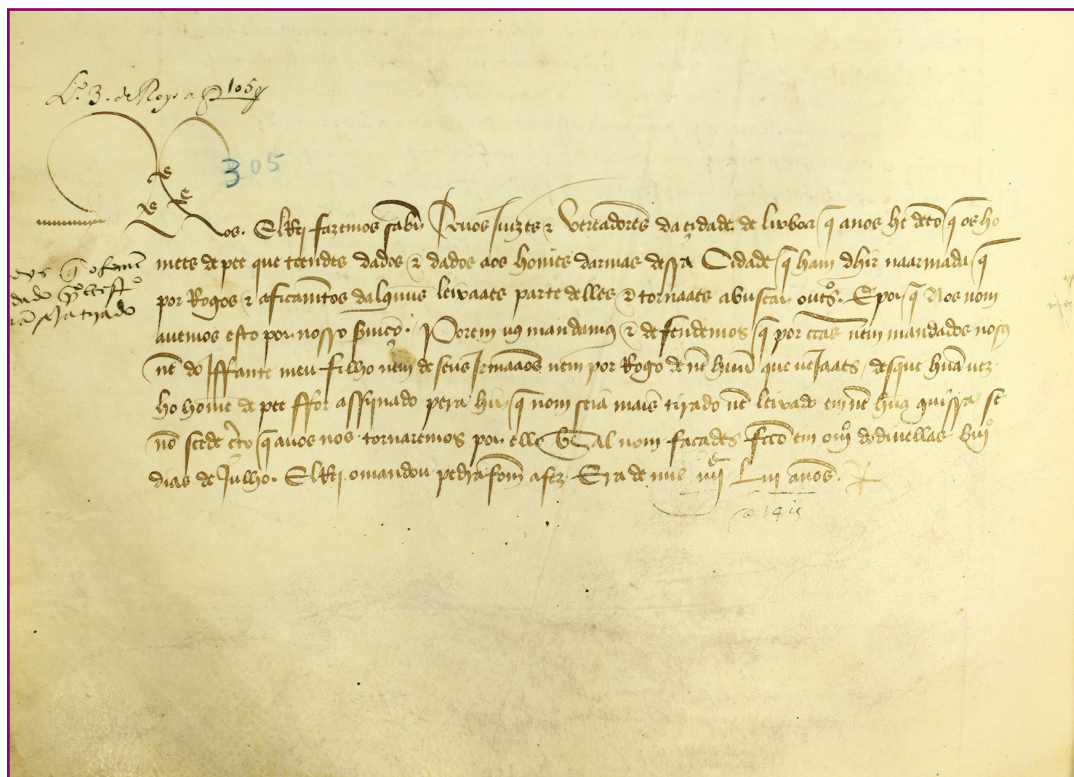 Lº 3. de Reys a fl 105
305
Nos. ElRej fazemos saber a vos Juizes & Vereadores da çidade de lixboa q̃ anos he dcõ q̃ os ho
mẽes de pee que teendes dados & dados aos homẽes darmas dessa Cidade q̃ ham dhir na armada q̃
por Rogos & aficamẽtos dalguũs leixaaes parte delles & tornaaes a buscar outºs. E por q̃ Nos nom
auemos esto por nosso seruiço. Porem uos mandamos & defendemos q̃ por cartas nem mandados nosos
nẽ do Iffante meu filho nem de seus Irmaãos nem por Rogo de nẽ huũ que uejaaes, des que huã uez
ho homẽ de pee ffor assijnado pera hir q̃ nom seia mais tirado nẽ leixado em nẽ huã guissa se
nõ seede çerto q̃ auos nos tornaremos por ello & al nom façades fecto em odiuellas biijº
dias de Julho. ElRej o mandou pedrafom a fez. Era de mil iiijᶜ Liij anos.
a 1415